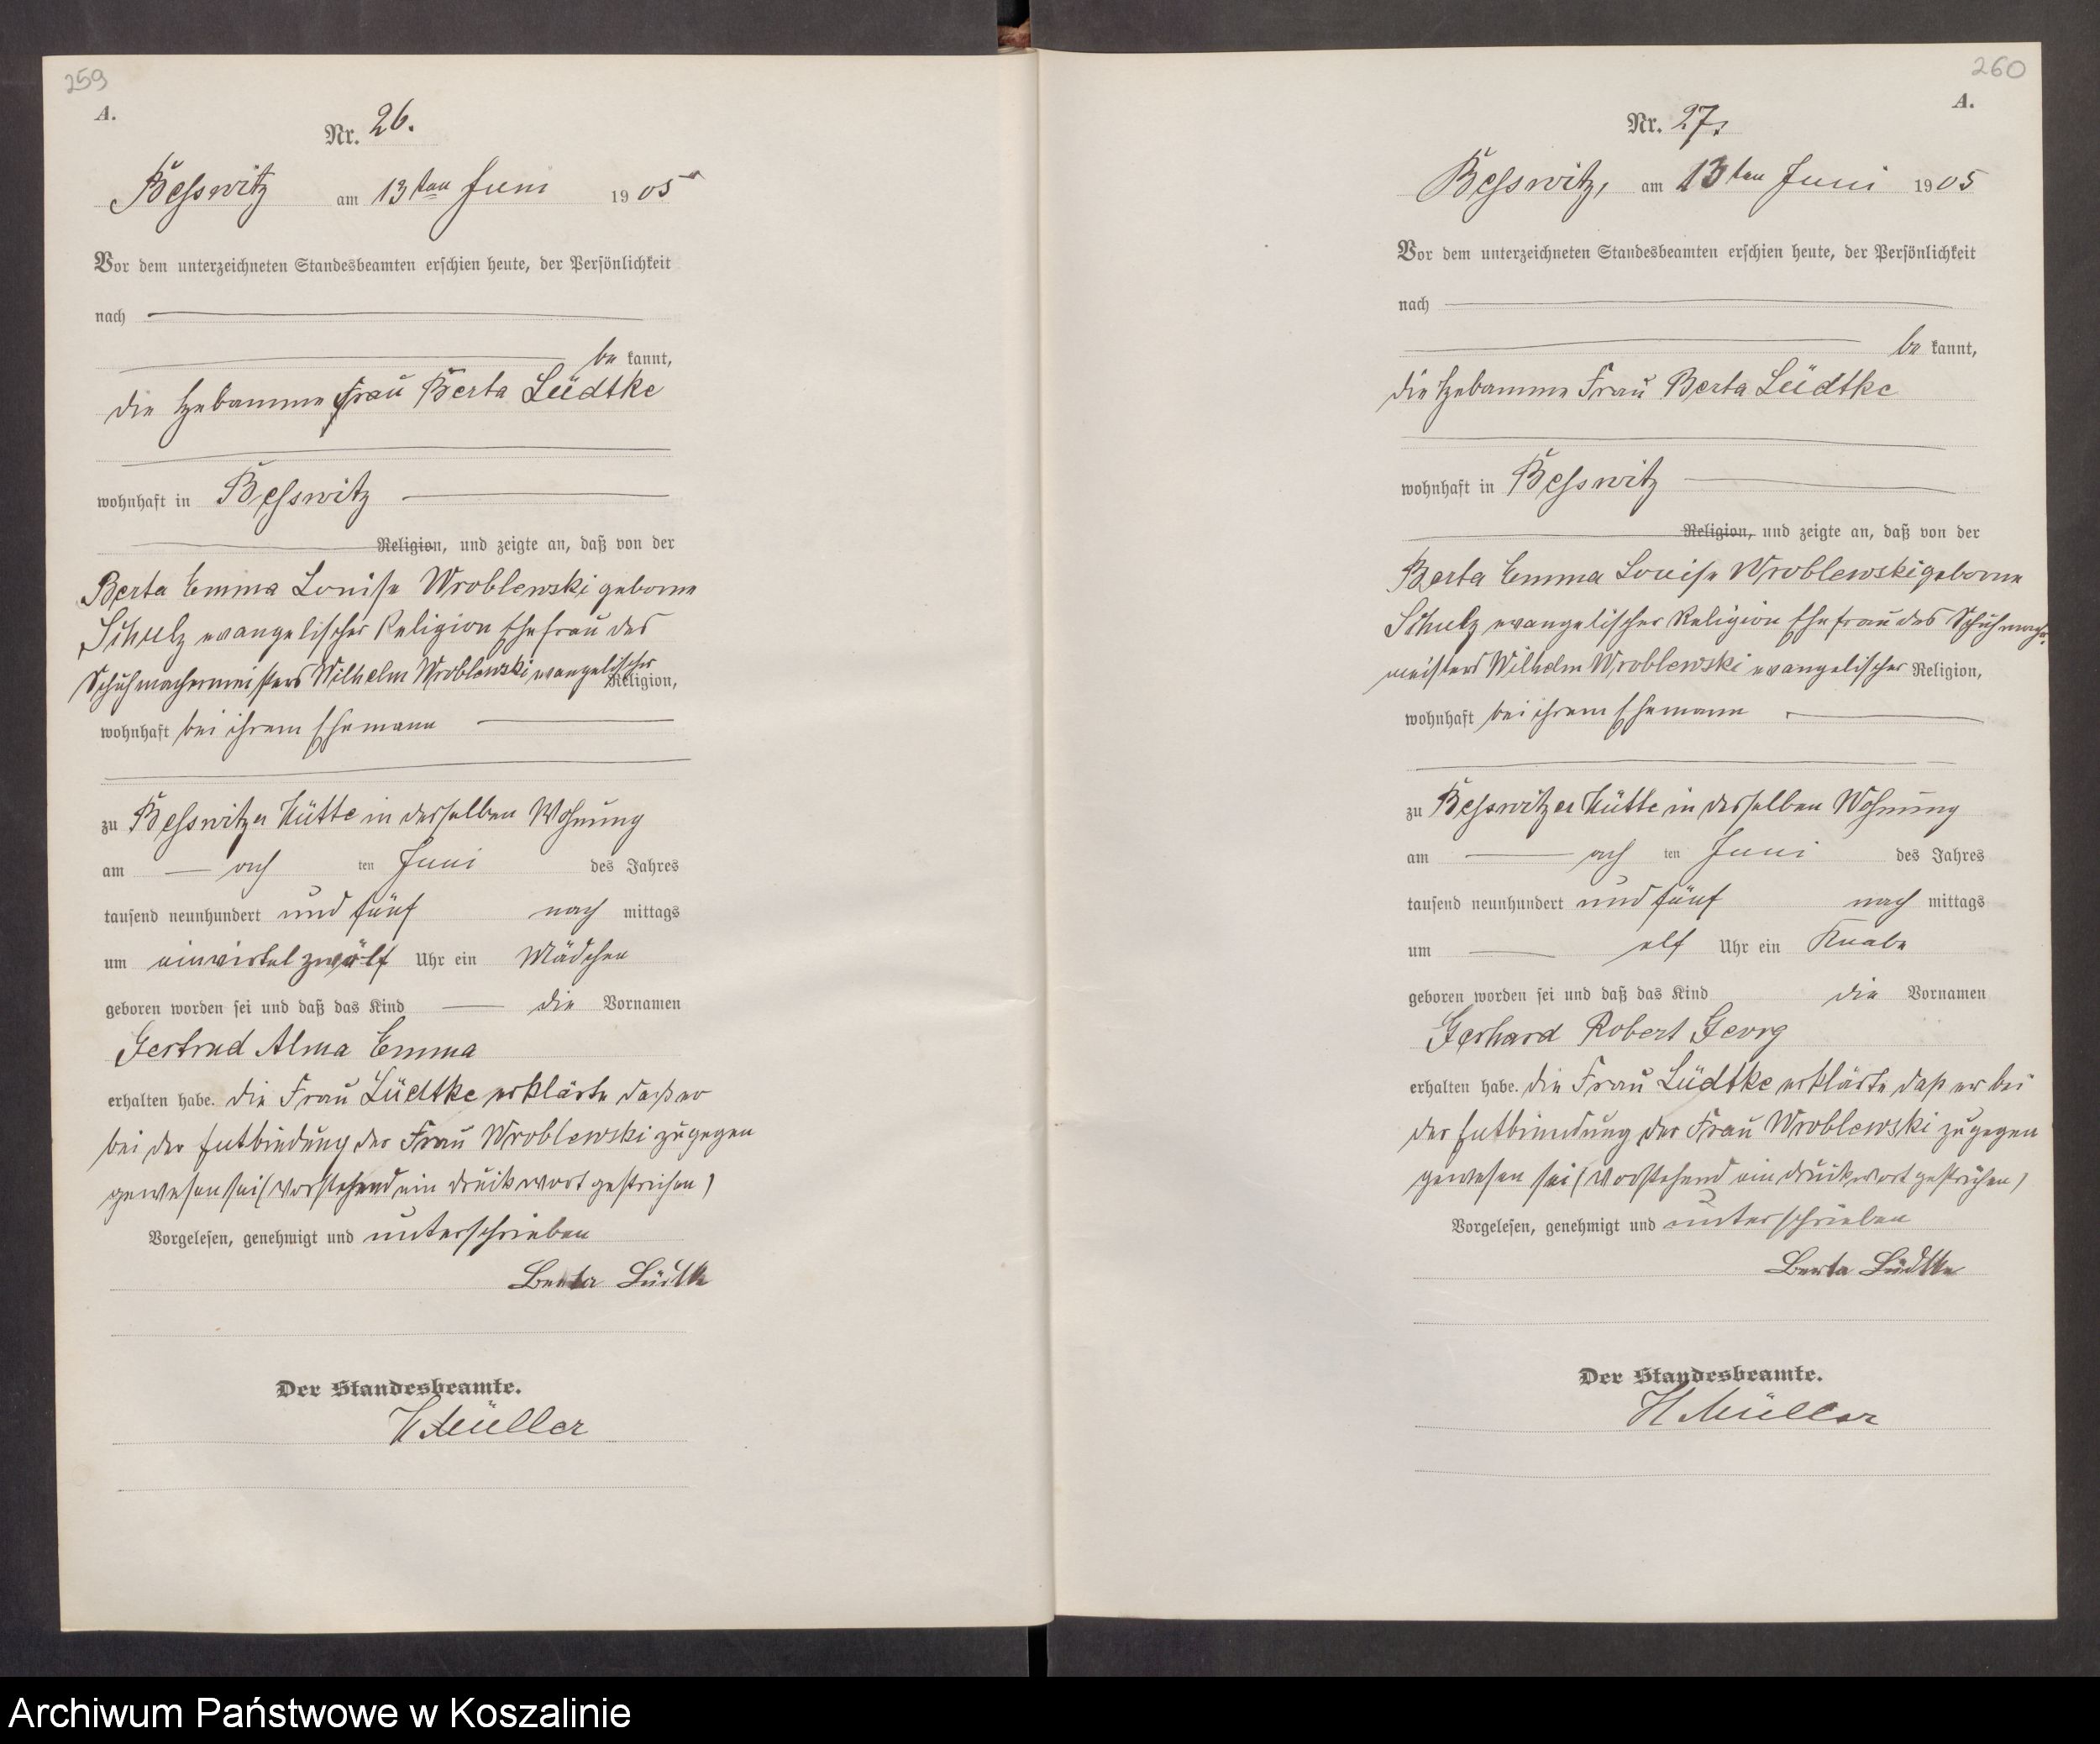 259
A.
Nr. 26.
Besswitz am 13ten Juni 1905
Vor dem unterzeichneten Standesbeamten erschien heute, der Persönlichkeit
nach
be kannt,
die Hebamme Frau Berta Lüdtke
wohnhaft in Besswitz
Religion, und zeigte an, daß von der
Berta Emma Louise Wroblewski geborne
Schulz evangelischer Religion Ehefrau des
Schuhmachermeisters Wilhelm Wroblewski evangelischer Religion,
wohnhaft bei ihrem Ehemann
zu Besswitzer Hütte in derselben Wohnung
am ach ten Juni des Jahres
tausend neunhundert und fünf nach mittags
um einviertel zwölf Uhr ein Mädchen
geboren worden sei und daß das Kind die Vornamen
Gertrud Alma Emma
erhalten habe. die Frau Lüdtke erklärte daß er
bei der Entbindung der Frau Wroblewski zugegen
gewesen sei (vorstehend ein Druckwort gestrichen)
Vorgelesen, genehmigt und unterschrieben
Berta Lüdtke
Der Standesbeamte.
H Müller
260
A.
Nr. 27.
Besswitz, am 13ten Juni 1905
Vor dem unterzeichneten Standesbeamten erschien heute, der Persönlichkeit
nach
be kannt,
die Hebamme Frau Berta Lüdtke
wohnhaft in Besswitz
Religion, und zeigte an, daß von der
Berta Emma Louise Wroblewski geborne
Schulz evangelischer Religion Ehefrau des Schuhmacher
meisters Wilhelm Wroblewski evangelischer Religion,
wohnhaft bei ihrem Ehemann
zu Besswitzer Hütte in derselben Wohnung
am ach ten Juni des Jahres
tausend neunhundert und fünf nach mittags
um elf Uhr ein Knabe
geboren worden sei und daß das Kind die Vornamen
Gerhard Robert Georg
erhalten habe. die Frau Lüdtke erklärte daß er bei
der Entbindung der Frau Wroblewski zugegen
gewesen sei (vorstehend ein Druckwort gestrichen)
Vorgelesen, genehmigt und unterschrieben
Berta Lüdtke
Der Standesbeamte.
H Müller
Archiwum Państwowe w Koszalinie